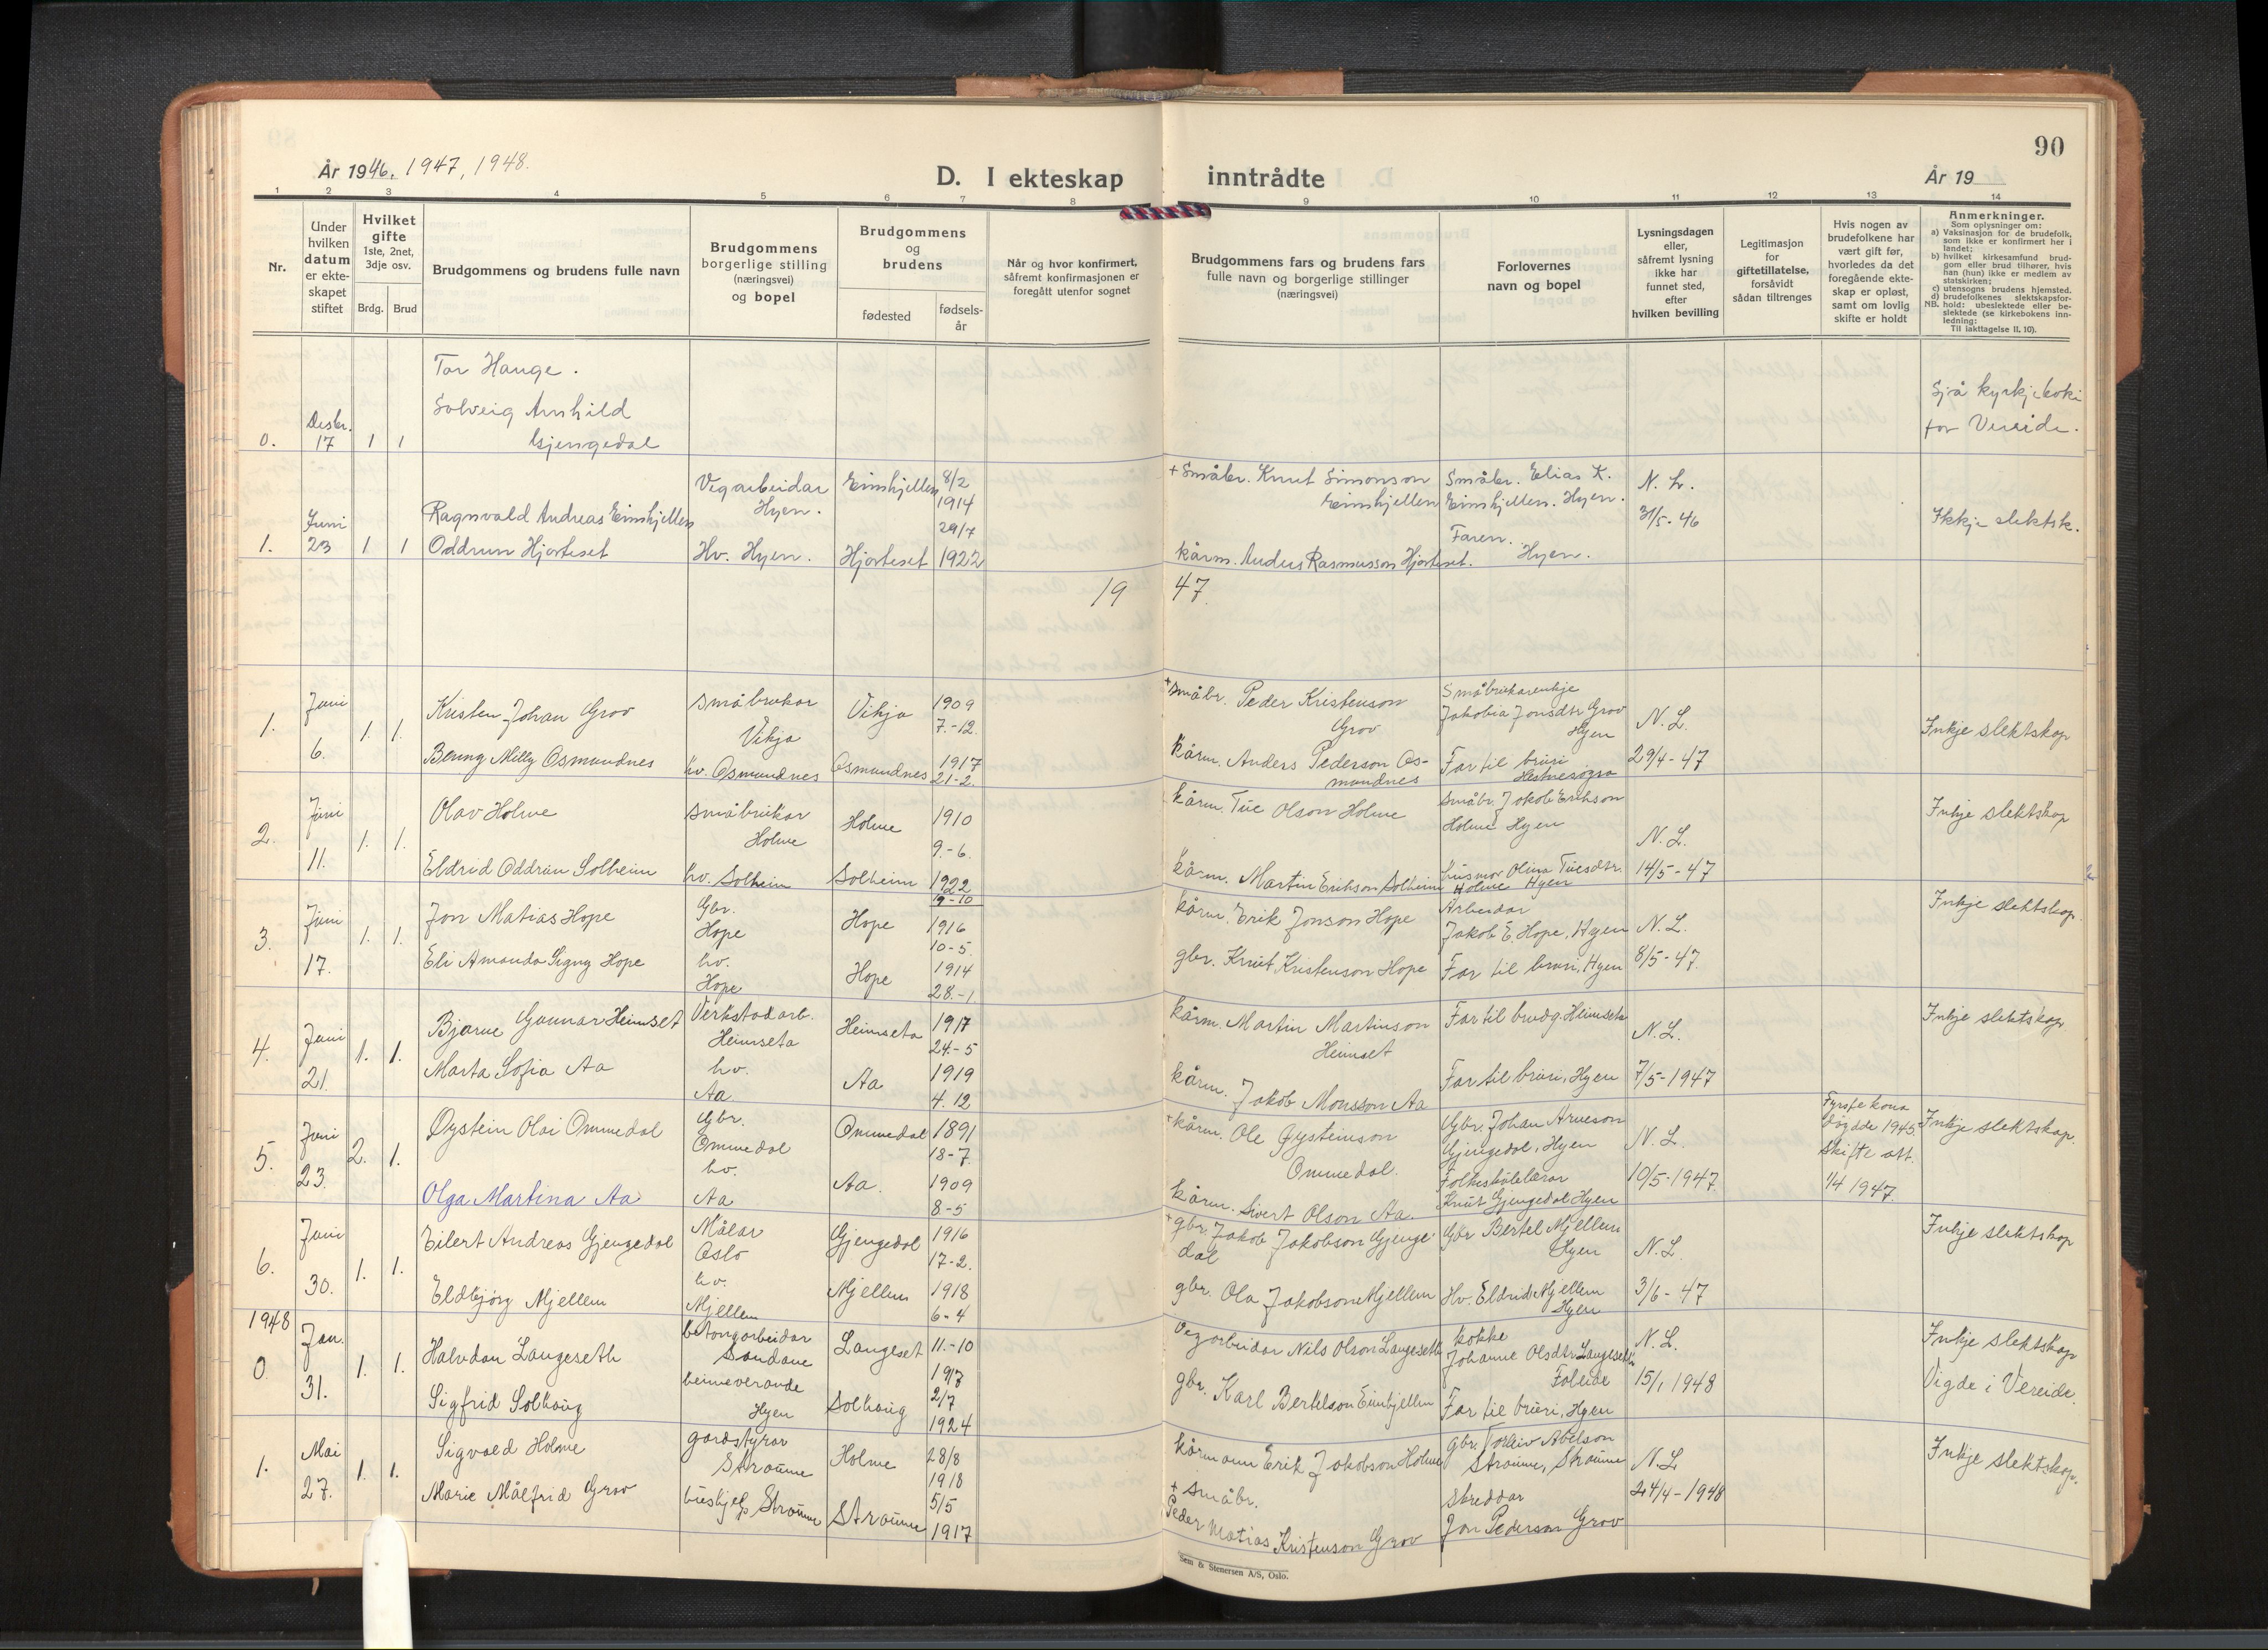 90
År 1946, 1947, 1948.
D. I ekteskap inntrådte
År 19
1 2 3 4 5 6 7 8 9 10 11 12 13 14
Nr.
Under
hvilken
datum
er ekte-
skapet
stiftet
Hvilket
gifte
1ste, 2net,
3dje osv.
Brdg. Brud
Brudgommens og brudens fulle navn
Brudgommens
borgerlige stilling
(næringsvei)
og bopel
Brudgommens
og
brudens
fødested
fødsels-
år
Når og hvor konfirmert,
såfremt konfirmasjonen er
foregått utenfor sognet
Brudgommens fars og brudens fars
fulle navn og borgerlige stillinger
(næringsvei)
Forlovernes
navn og bopel
Lysningsdagen
eller,
såfremt lysning
ikke har
funnet sted,
efter
hvilken bevilling
Legitimasjon
for
giftetillatelse,
forsåvidt
sådan tiltrenges
Hvis nogen av
brudefolkene har
vært gift før,
hvorledes da det
foregående ekte-
skap er opløst,
samt om lovlig
skifte er holdt
Anmerkninger.
Som oplysninger om:
a) Vaksinasjon for de brudefolk,
som ikke er konfirmert her i
landet;
b) hvilket kirkesamfund brud-
gom eller brud tilhører, hvis
han (hun) ikke er medlem av
statskirken;
c) utensogns brudens hjemsted.
d) brudefolkenes slektskapsfor-
NB. hold: ubeslektede eller be-
slektede (se kirkebokens inn-
ledning:
Til iakttagelse II, 10).
Tor Hauge.
Solveig Arnhild
Gjengedal
0. Desbr. 17 1 1
Sjå kyrkjeboki
for Vereide.
1. Juni 23 1 1
Ragnvald Andreas Eimhjellen
Oddrun Hjorteset
Vegarbeidar
Hyen.
Hv. Hyen.
Eimhjellen 8/2
1914
29/7
Hjorteset 1922
+ Småbr. Knut Simonson
Eimhjellen
kårm. Anders Rasmusson Hjorteset.
Småbr. Elias K.
Eimhjellen. Hyen.
Faren.
Hyen.
N. L.
31/5-46
Ikkje slektsk.
19 47.
1. Juni 6. 1. 1.
Kristen Johan Grov
Benny Milly Osmundnes
småbrukar
Vikja
hv. Osmundnes
Vikja 1909
7.-12.
Osmundnes 1917
21-2.
+ småbr. Peder Kristenson
Grov
kårm. Anders Pederson Os-
mundnes
Småbrukarenkje
Jakobia Jonsdtr Grov
Hyen
Far til bruri
N. L.
29/4-47
Inkje slektskap
2. Juni 11. 1. 1.
Olav Holme
Eldrid Oddrun Solheim
småbrukar
Holme
hv. Solheim
Holme 1910
9.-6.
Solheim 1922
9-10
kårm. Tue Olson Holme
kårm. Martin Erikson Solheim
småbr. Jakob Erikson
Holme Hyen
husmor Olina Tuesdtr.
Holme Hyen
N. L.
14/5-47
Inkje slektskap
3. Juni 17. 1. 1.
Jon Matias Hope
Eli Amanda Signy Hope
Gbr.
Hope
hv.
Hope
Hope 1916
10-5.
Hope 1914
28.-1
kårm. Erik Jonson Hope
gbr. Knut Kristenson Hope
Arbeidar
Jakob E. Hope, Hyen
Far til bruri, Hyen
N. L.
8/5-47.
Inkje slektskap.
4. Juni 21. 1. 1.
Bjarne Gunnar Heimset
Marta Sofia Aa
Verkstadarb.
Heimseta
hv.
Aa
Heimseta 1917
24.-5
Aa 1919
4.12
kårm. Martin Martinson
Heimset
kårm. Jakob Monsson Aa
Far til brudg. Heimseta
Far til bruri, Hyen
N. L.
7/5-1947
Inkje slektskap
5. Juni 23. 2. 1.
Øystein Olai Ommedal
Olga Martina Aa
Gbr.
Ommedal
hv.
Aa
Ommedal 1891
18-7.
Aa. 1909
8-5
+ kårm. Ole Øysteinson
Ommedal.
kårm. Sivert Olson Aa.
Gbr. Johan Arneson
Gjengedal, Hyen
Folkeskulelærar
Knut Gjengedal Hyen
N. L.
10/5-1947
Fyrste kona
døydde 1945.
Skifte att.
1/4 1947.
Inkje slektskap.
6. Juni 30. 1. 1.
Eilert Andreas Gjengedal
Eldbjørg Mjellem
Målar
Oslo
hv.
Mjellem
Gjengedal 1916
17-2.
Mjellem 1918
6-4
+ gbr. Jakob Jakobson Gjenge-
dal
gbr. Ola Jakobson Mjellem
Gbr Bertel Mjellem
Hyen
Hv. Eldrid Mjellem
Hyen
N. L.
3/6-47
Inkje slektskap
1948
0 Jan. 31. 1. 1.
Halvdan Langeseth
Sigfrid Solhaug
betongarbeidar
Sandane
heimeverande
Hyen
Langeset 11.-10
1917
Solhaug 2/7
1924
Vegarbeidar Nils Olson Langeseth
gbr. Karl Bertelson Eimhjellen
kokke
Johanne Olsdtr Langeseth
Far til bruri, Hyen
N. L.
15/1 1948
Inkje slektskap
Vigde i Vereide.
1. Mai 27. 1. 1.
Sigvald Holme
Marie Målfrid Grov
gardstyrar
Straume
hushjelp Straume
Holme 28/8
1918
Straume 5/5
1917
kårmann Erik Jakobson Holme
+ småbr.
Peder Matias Kristenson Grov
gbr. Torleiv Abelson
Straume, Straume
skreddar
Jon Pederson Grov
N. L.
24/4-1948
Inkje slektskap.
Sem & Stenersen A/S, Oslo.